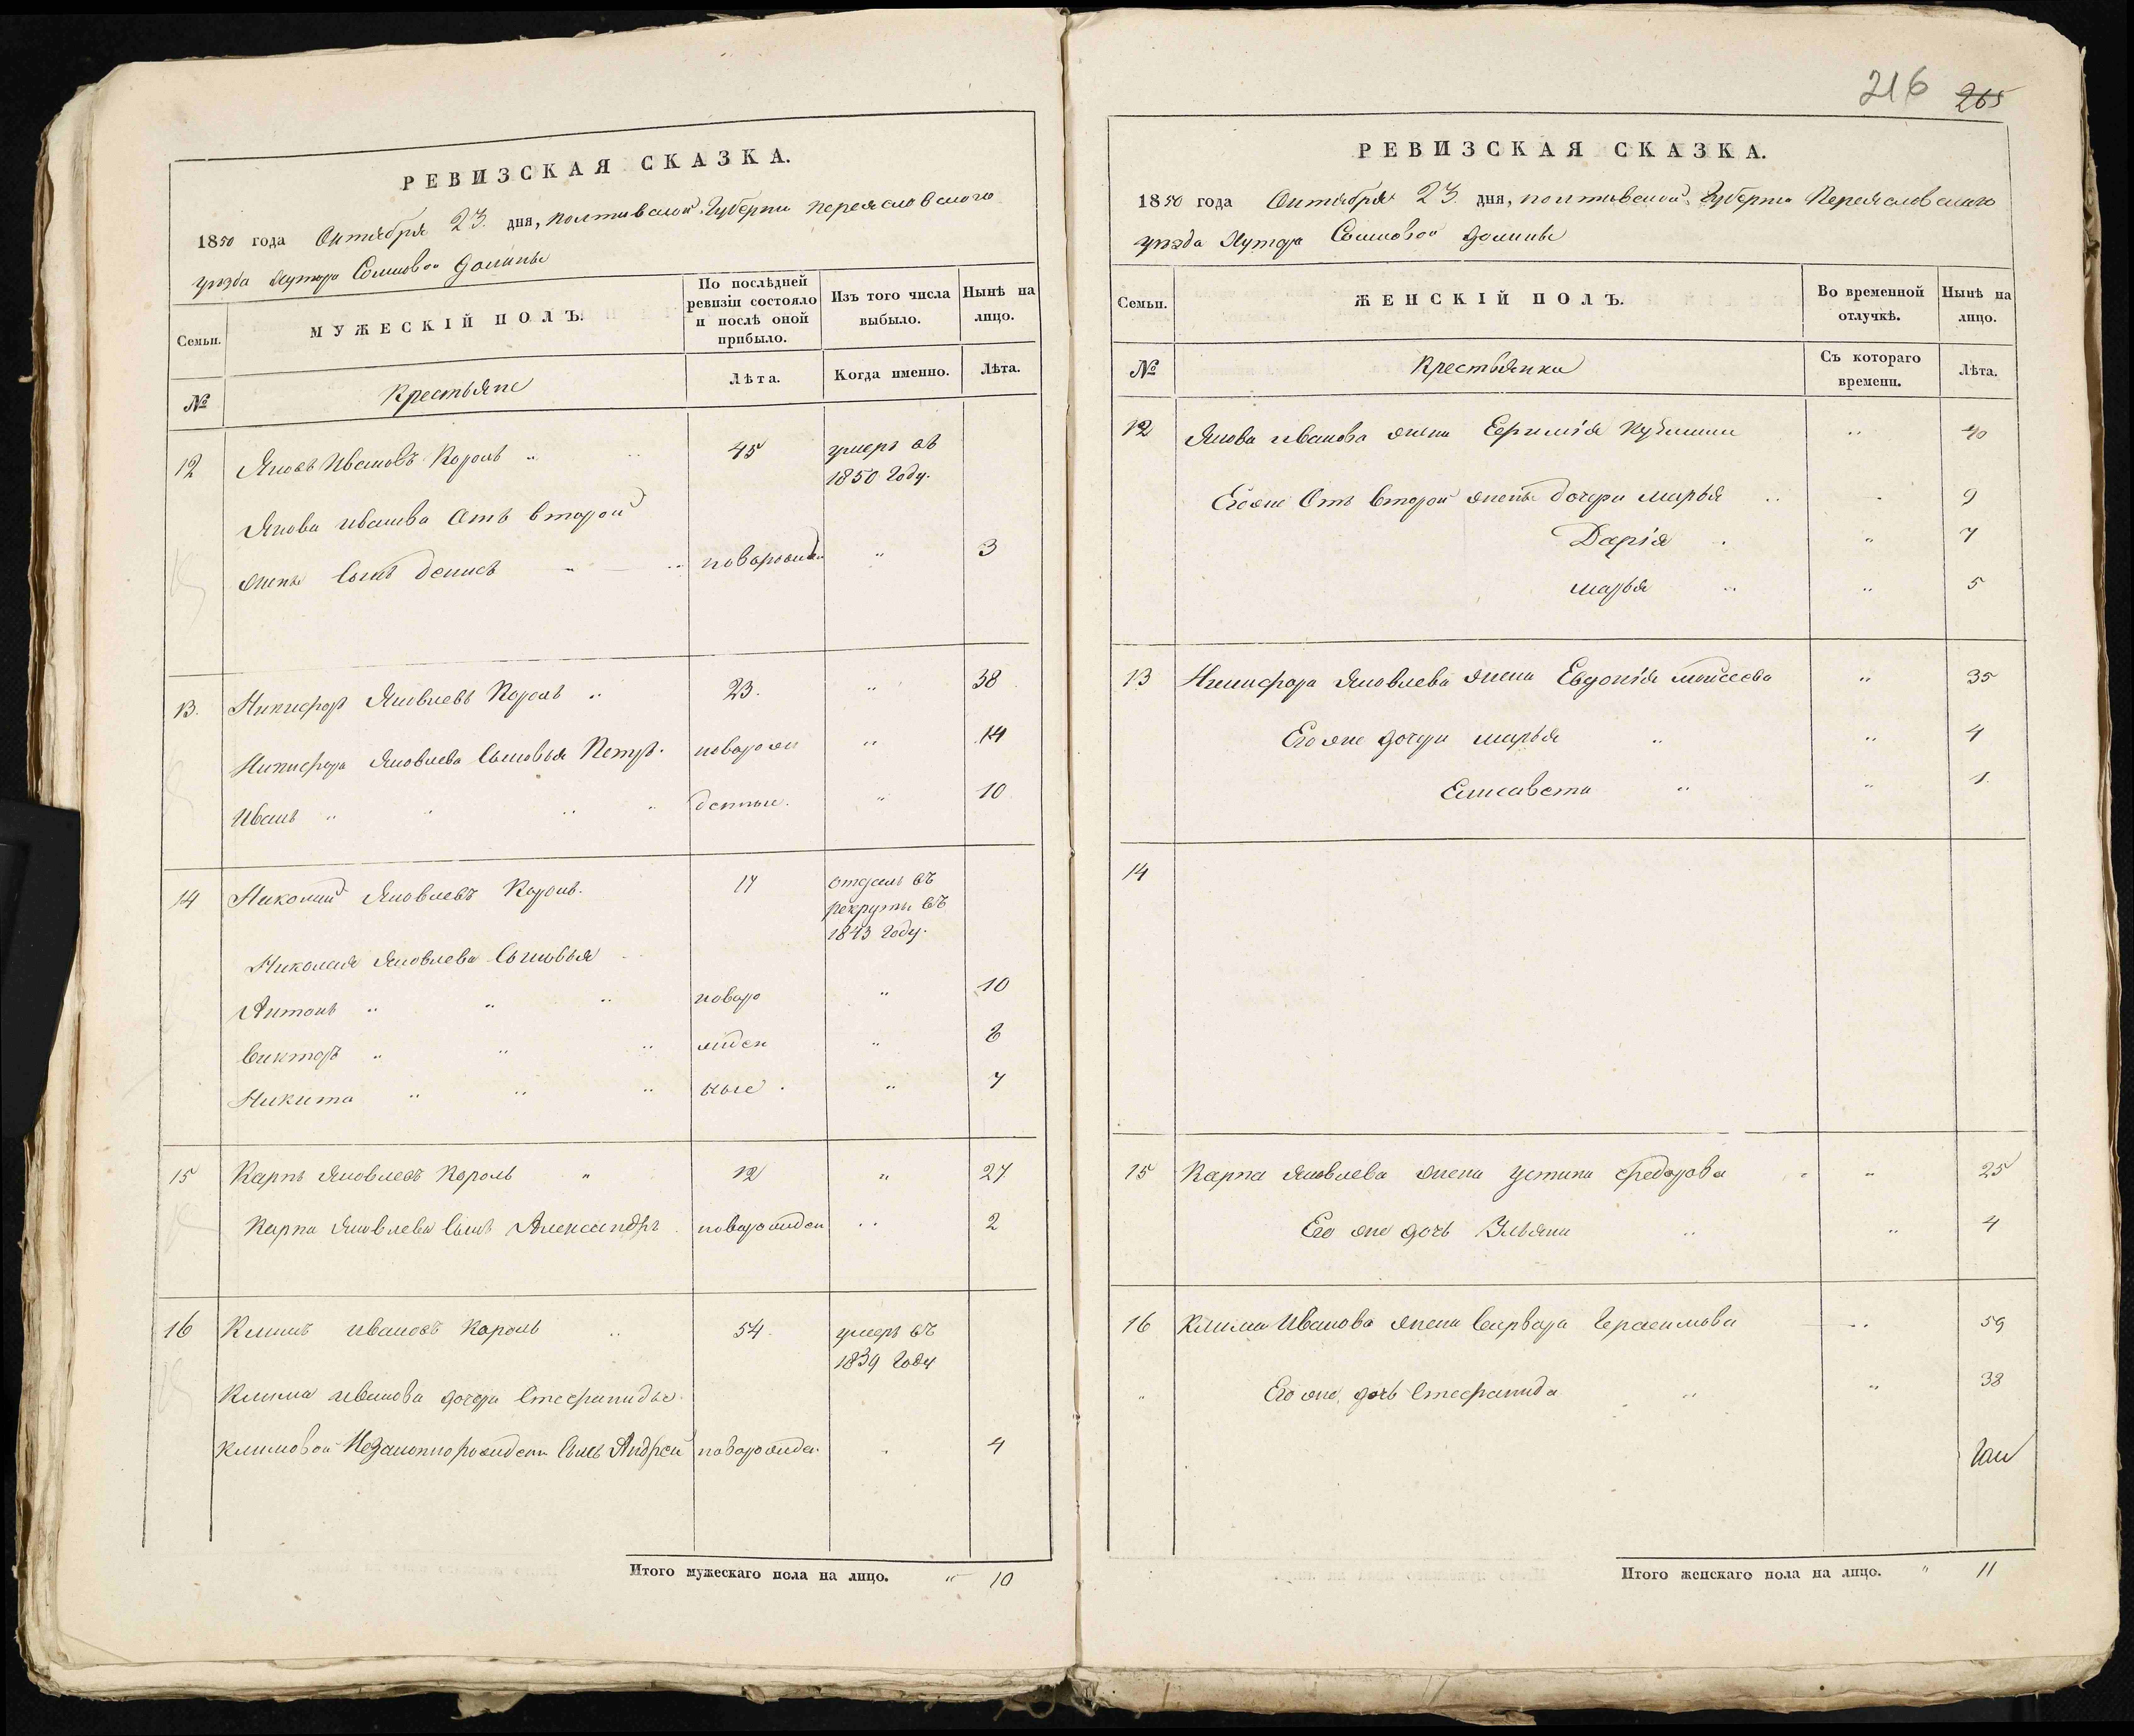 РЕВИЗСКАЯ СКАЗКА.
1850 года Октября 23. дня, Полтавской Губерни Переяславского
уезда Хутора Сомковой Долины
Семьи. МУЖЕСКІЙ ПОЛЪ. По послѣдней ревизіи состояло и послѣ оной прибыло. Изъ того числа выбыло. Нынѣ на лицо.
№ Крестьяне Лѣта. Когда именно. Лѣта.
12 Яковъ Ивановъ Король 45 умеръ въ
1850 Году.
Якова Иванова Отъ второй
жены Сынъ Денисъ новорожд. 3
13. Никифоръ Яковлевъ Король 23. 38
Никифора Яковлева Сыновья Петръ. новорож 14
Иванъ денные. 10
14 Николай Яковлевъ Король. 17 отданъ въ
рекруты въ
1843 Году.
Николая Яковлева Сыновья
Антонъ новоро 10
Викторъ жден 8
Никита ные. 7
15 Карпъ Яковлевъ Король 12 27
Карпа Яковлева Сынъ Александръ новорожден 2
16 Климъ Ивановъ Король 54. умеръ въ
1839 Году
Клима Иванова дочери Стефаниды
Климовой Незаконнорожденн Сынъ Андрей новорожде. 4
Итого мужескаго пола на лицо. 10
216 265
РЕВИЗСКАЯ СКАЗКА.
1850 года Октября 23. дня, Полтавской Губерни Переяславского
уезда Хутора Сомковой Долины
Семьи. ЖЕНСКІЙ ПОЛЪ. Во временной отлучкѣ. Нынѣ на лицо.
№ Крестьянки Съ котораго времени. Лѣта.
12 Якова Иванова жена 40
Егоже Отъ второй жены дочери Марья 9
Дарія 7
Марья 5
13 Никифора Яковлева жена Евдокія Моисеева 35
Его же дочери Марья 4
Елисавета 1.
14
15 Карпа Яковлева жена Устина Федорова 25
Его же дочь Ульяна 4
16 Клима Иванова жена Варвара Герасимова 59
Его же дочь Стефанида 38
Итого женскаго пола на лицо. 11